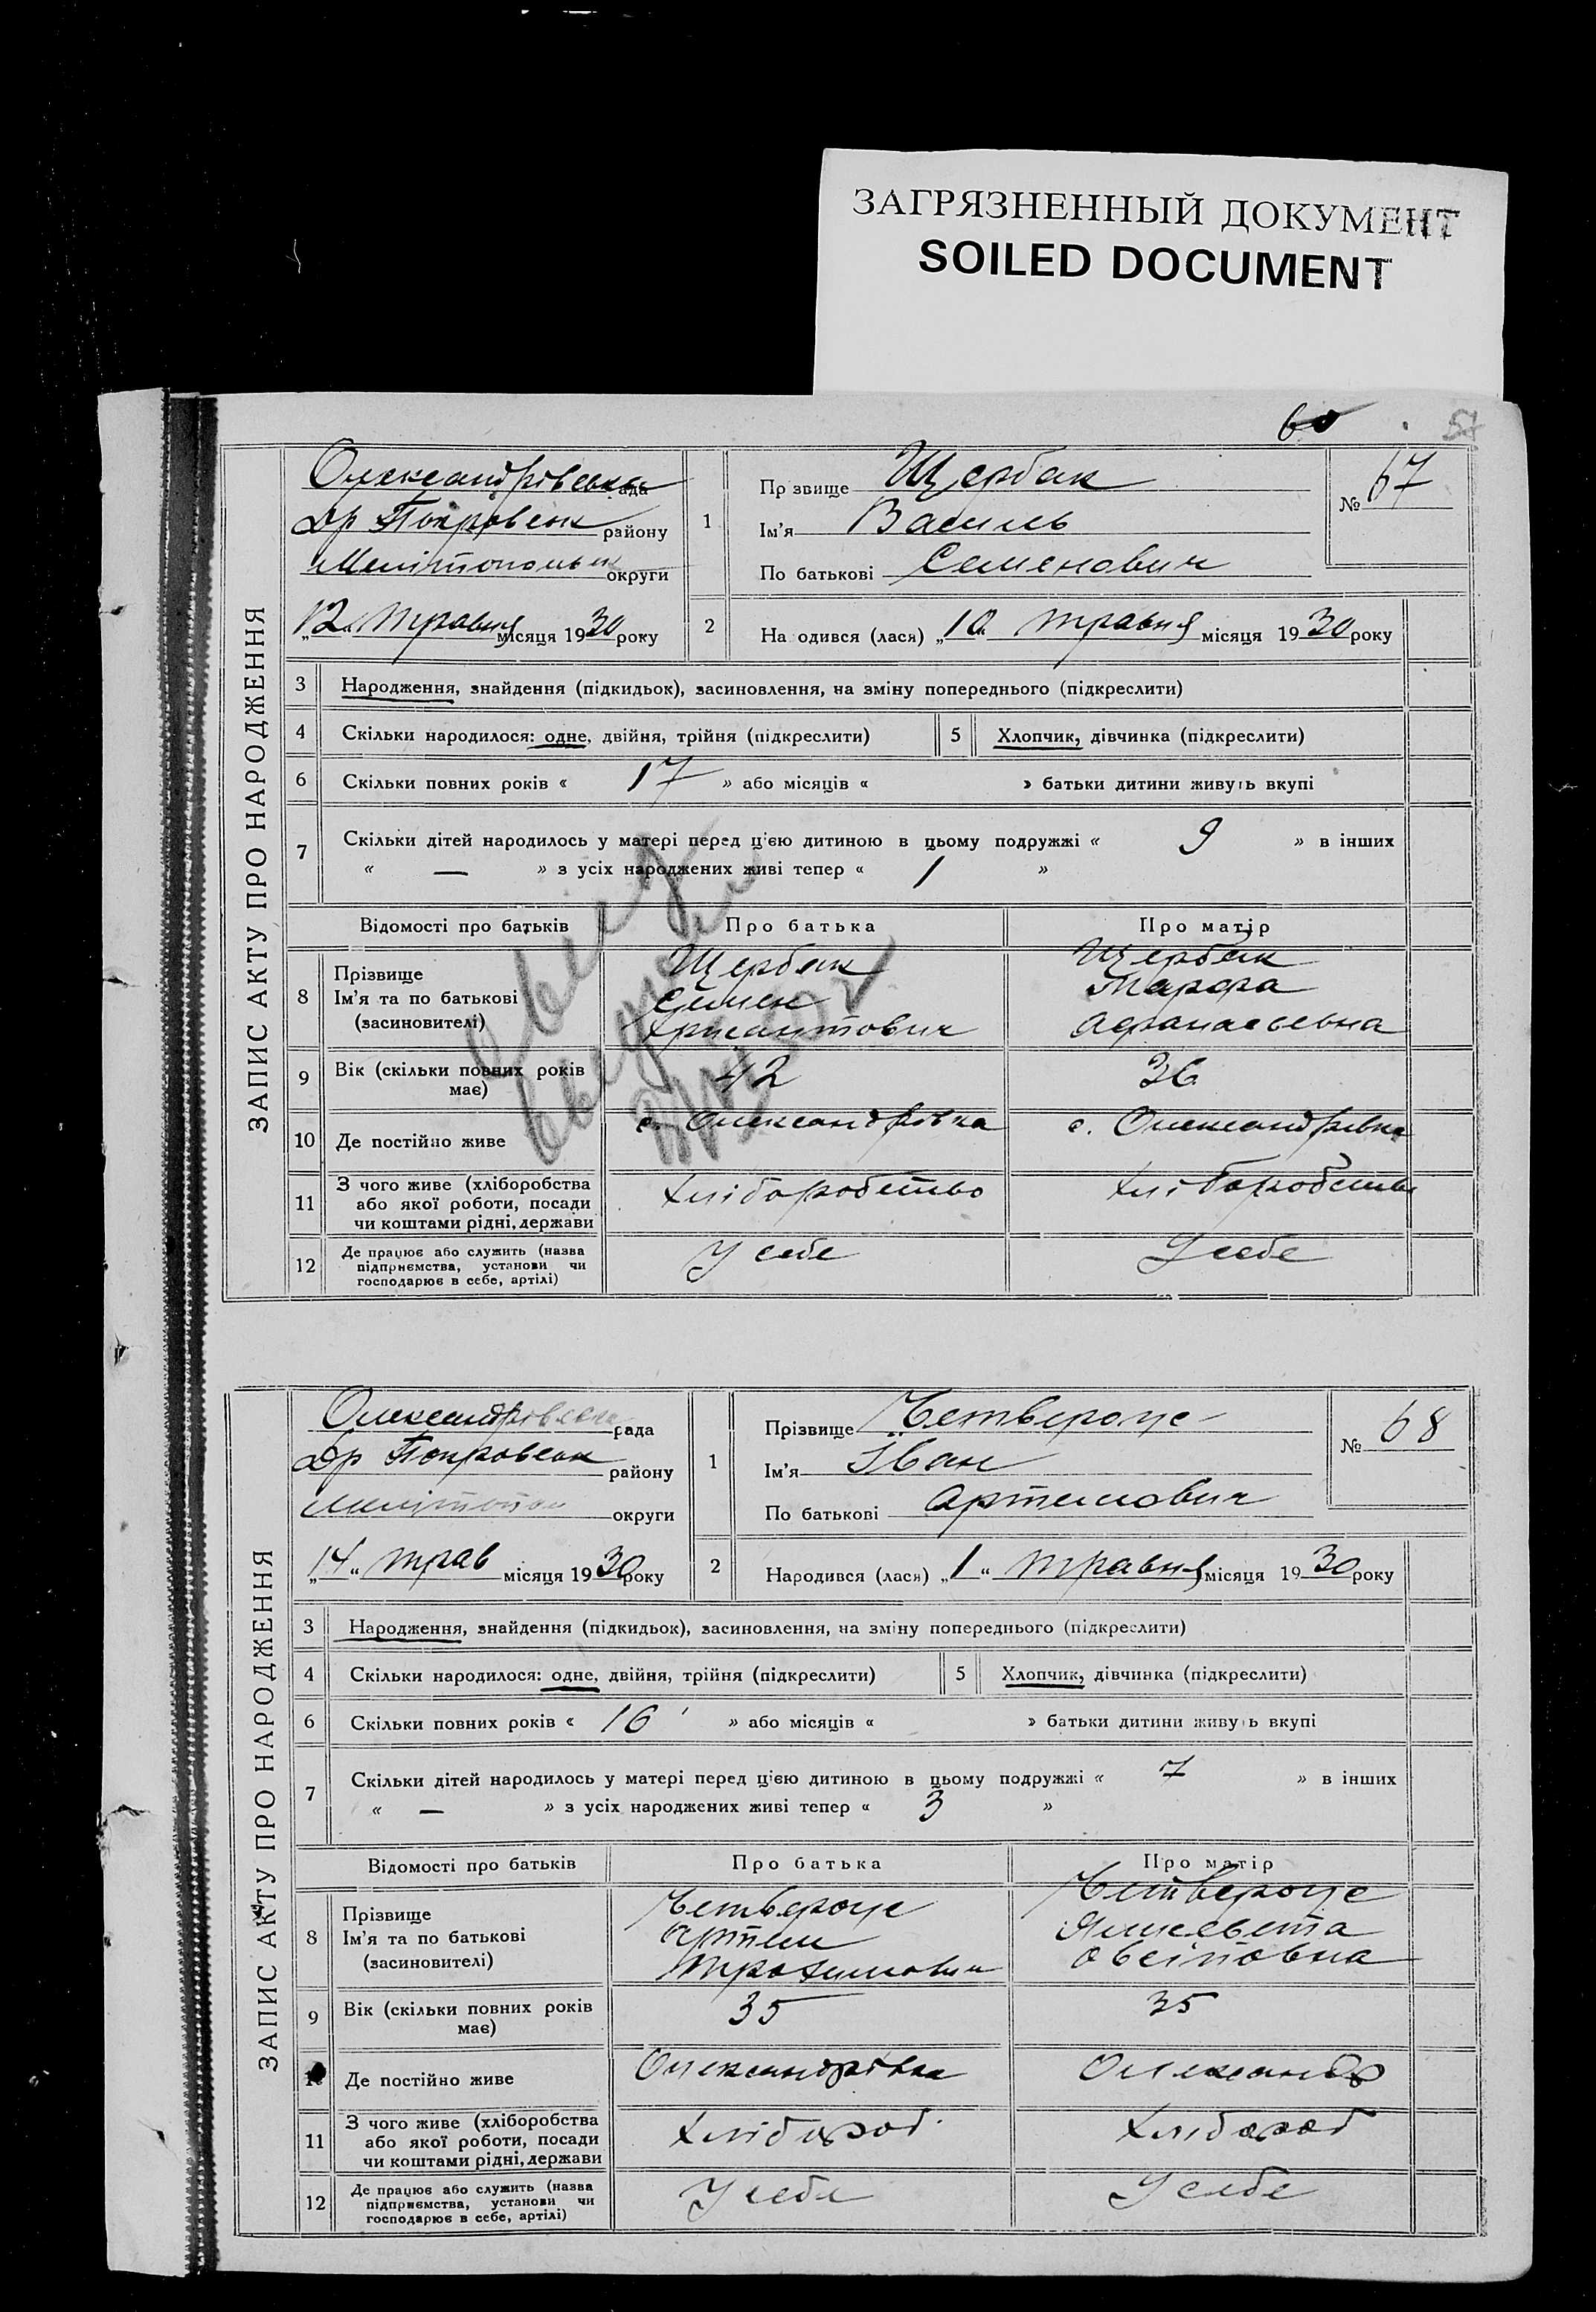 ЗАГРЯЗНЕННЫЙ ДОКУМЕНТ
SOILED DOCUMENT
60
ЗАПИС АКТУ ПРО НАРОДЖЕННЯ
Олександрівська рада
Др Покровськ району
Мелітопольськ округи
„12“ Травня місяця 1930 року
1
Прзвище Щербак
Ім'я Василь
По батькові Семенович
№ 67
2
На одився (лася) „10“ травня місяця 1930 року
3 Народження, знайдення (підкидьок), засиновлення, на зміну попереднього (підкреслити)
4 Скільки народилося: одне, двійня, трійня (підкреслити)
5 Хлопчик, дівчинка (підкреслити)
6 Скільки повних років « 17 » або місяців « » батьки дитини живуть вкупі
7 Скільки дітей народилось у матері перед цією дитиною в цьому подружжі « 9 » в інших
« — » з усіх народжених живі тепер « 1 »
Відомості про батьків Про батька Про матір
8 Прізвище Ім'я та по батькові (засиновителі)
Щербак Семен Хрисантович
Щербак Марфа Афанасьевна
9 Вік (скільки повних років має) 42 36
10 Де постійно живе с. Олександрівка с. Олександрівка
11 З чого живе (хліборобства або якої роботи, посади чи коштами рідні, держави Хліборобство Хліборобство
12 Де працює або служить (назва підприємства, установи чи господарює в себе, артілі) У себе У себе
ЗАПИС АКТУ ПРО НАРОДЖЕННЯ
Олександрівська рада
Др Покровськ району
Мелітопол округи
„14“ трав місяця 1930 року
1
Прізвище Четвероус
Ім'я Іван
По батькові Артемович
№ 68
2
Народився (лася) „1“ травня місяця 1930 року
3 Народження, знайдення (підкидьок), засиновлення, на зміну попереднього (підкреслити)
4 Скільки народилося: одне, двійня, трійня (підкреслити)
5 Хлопчик, дівчинка (підкреслити)
6 Скільки повних років « 16 » або місяців « » батьки дитини живуть вкупі
7 Скільки дітей народилось у матері перед цією дитиною в цьому подружжі « 7 » в інших
« — » з усіх народжених живі тепер « 3 »
Відомості про батьків Про батька Про матір
8 Прізвище Ім'я та по батькові (засиновителі)
Четвероус Артем Трохимович
Четвероус
9 Вік (скільки повних років має) 35 35
10 Де постійно живе Олександрівка Олександр
11 З чого живе (хліборобства або якої роботи, посади чи коштами рідні, держави Хлібороб Хлібороб
12 Де працює або служить (назва підприємства, установи чи господарює в себе, артілі) У себе У себе